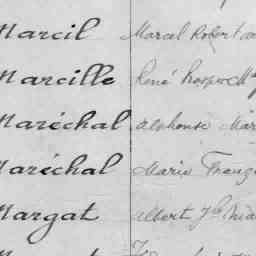 Marcil Marcel Robert
Marcille René Prosper
Maréchal Alphonse Mar
Maréchal Marie Franç
Margat Albert